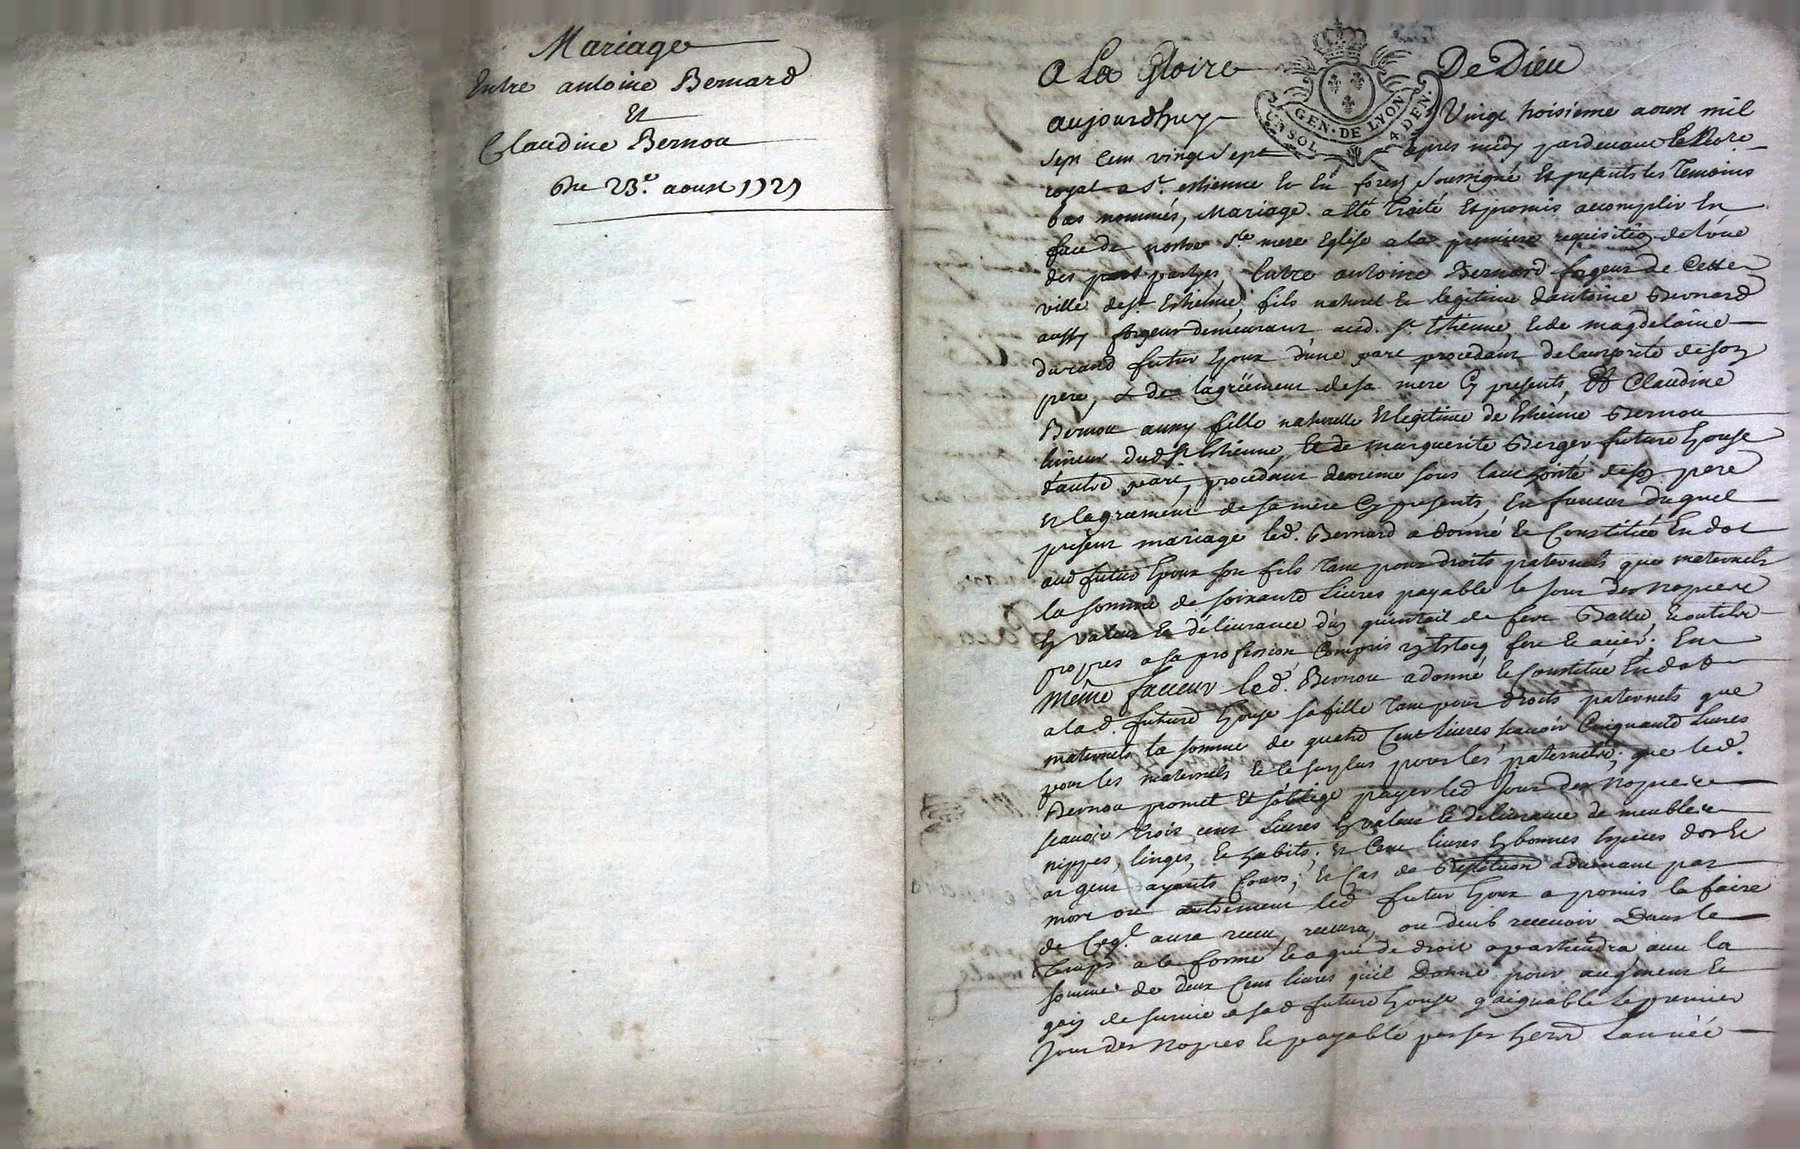 Mariage
Entre antoine Bernard
Et
Claudine Bernou
Du 23.e aoust 1727
A La Gloire De Dieu
GEN. DE LYON
UN SOL 4 DEN.
aujourdhuy Vingt troisieme aoust mil
sept cens vingt sept apres midy pardevant le No.re
royal a St. estienne Et En forest soussigné Et presents les Temoins
bas nommés, Mariage a Eté traité Et promis accomplir En
face de nostre Ste. mere Eglise a la premiere requisition de l'une
des partyes, Entre antoine Bernard forgeur de Cette
ville de St. Estienne, fils naturel Et legitime d'antoine Bernard
aussy forgeur demeurant aud. St. Estienne Et de magdelaine
durand futur Epoux d'une part procedant de l'authorité de son
pere, & de l'agréement de sa mere Cy presents, Et Claudine
Bernou aussy fille naturelle Et legitime de Estienne Bernou
dud St Estienne, Et de marguerite Berger future Epouse
d'autre part, procedant de mesme sous l'authorité de son pere
Et l'agrement de sa mere Cy presents, En faveur duquel
present mariage led. Bernard a donné Et Constitué En dot
aud futur Epoux son fils tant pour droits paternels que maternels
la somme de soixante Livres payable le Jour des Nopces
En valeur Et délivrance d'un quintail de fer Et outils
propres a sa profession Compris fer Et acier; En
même faveur led. Bernou a donné Et Constitué En dot
a lad. future Epouse sa fille tant pour droits paternels que
maternels la somme de quatre Cent livres scavoir Cinquante Livres
pour les maternels Et le surplus pour les paternels, que led.
Bernou promet Et s'oblige payer led Jour des Nopces
scavoir trois cent Livres En valeur Et délivrance de meubles
nippes, linges, Et habits, Et Cent livres En bonnes Especes d'or Et
argent ayants Cours; Et Cas de restitution advenant par
mort ou autrement led futur Epoux a promis la faire
de Ce q.l aura receu, recevra, ou deub recevoir Dans le
temps a la forme Et a qui de droit apartiendra avec la
somme de deux Cent livres qu'il Donne pour augment Et
gain de survie a sad future Epouse gaignable le premier
Jour des Nopces Et payable par ses heritiers L'année